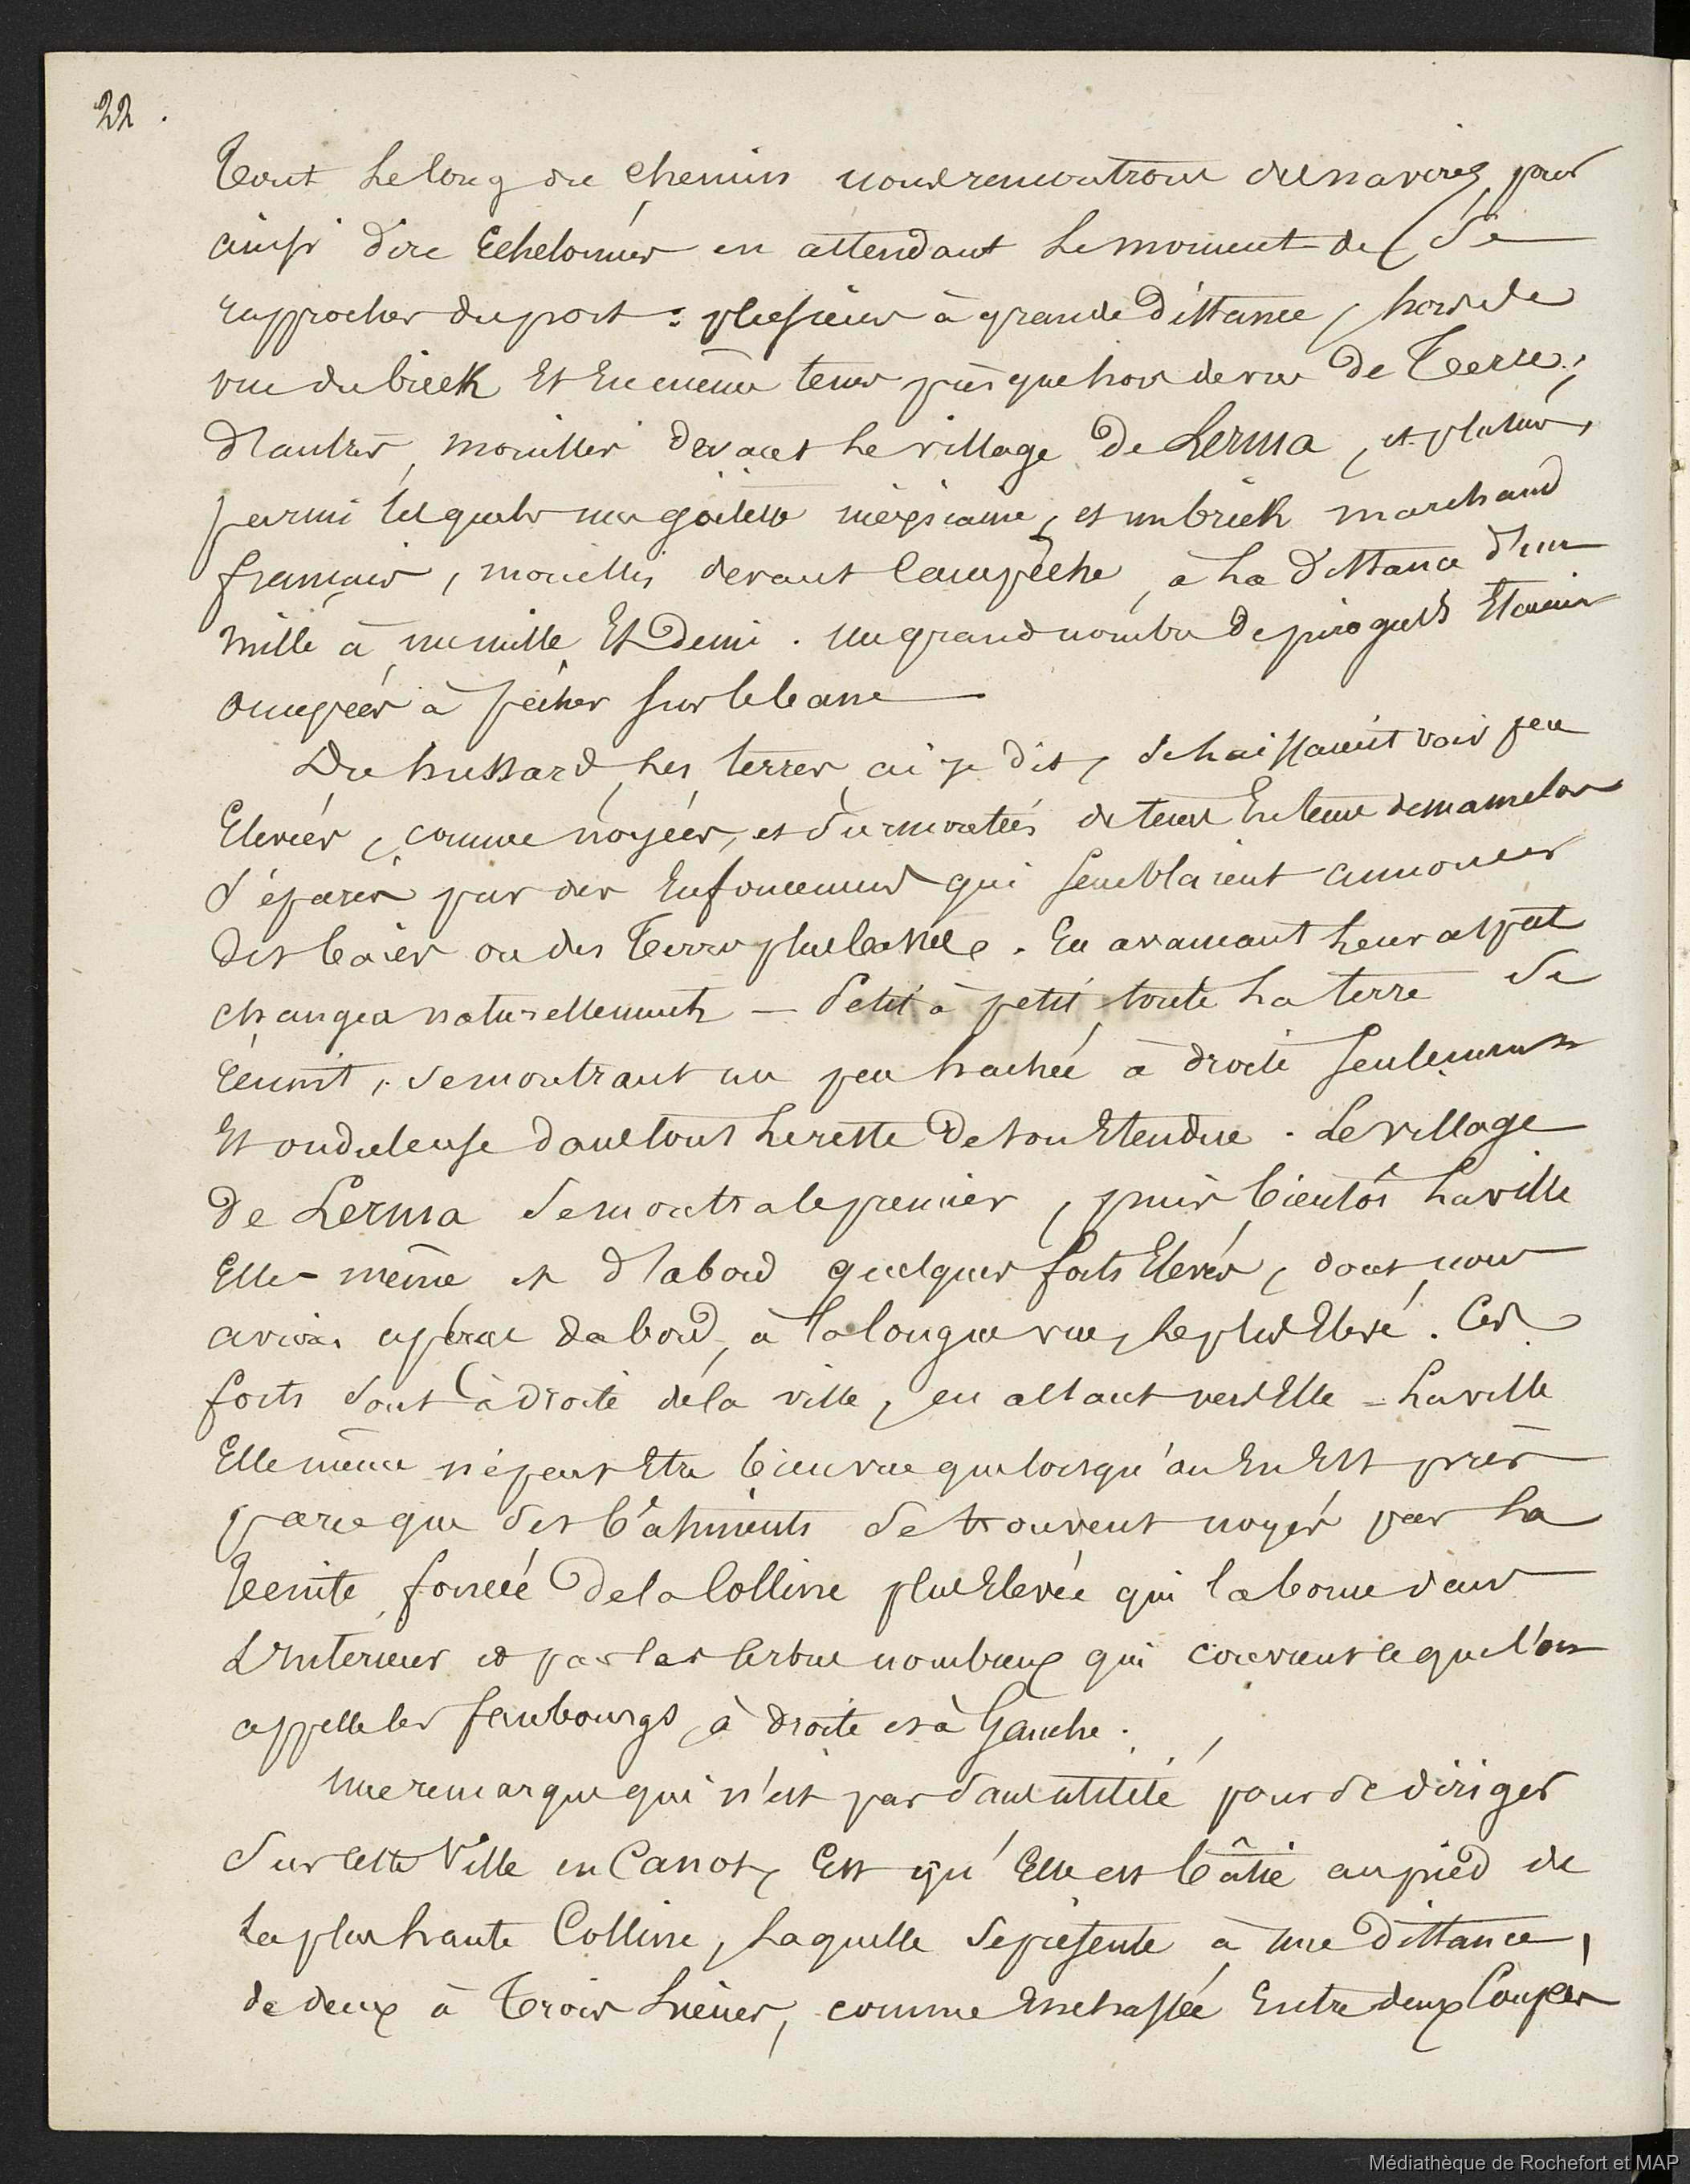 22.
Tout le long du chemin nous rencontrons des navires, pour
ainsi dire echelonnés en attendant le moment de se
rapprocher du port : plusieurs à grande distance, hors de
vue du brick et en même tems presque hors de vue de Terre ;
d'autres, mouillés devant le village de Lerma, et plusieurs,
parmi lesquels une goëlette mexicaine, et un brick marchand
français, mouillés devant Campêche, à la distance d'un
mille à un mille et Demi. Un grand nombre de pirogues etaient
occupées à pêcher sur le banc
Du hussard, les terres, ai-je dit, se laissaient voir peu
Elevées, comme noyées, et surmontées de tems en tems de mamelons
séparés par des Enfoncemens qui semblaient annoncer
des baies ou des Terres plus basses. En avançant leur aspect
changea naturellement — Petit à petit, toute la terre se
réunit, se montrant un peu hachée à droite seulement
et onduleuse dans tout le reste de son Etendue. Le village
de Lerma se montra le premier, puis bientôt la ville
Elle-même et d'abord quelques forts Elevés, dont nous
avions aperçu dabord, à la longue vue, le plus Elevé. Ces
forts sont à droite de la ville, en allant vers Elle = La ville
Elle même ne peut Etre bien vue que lorsqu'on en Est près
parce que ses bâtiments se trouvent noyés par la
teinte foncée de la Colline plus Elevée qui la borne dans
L'interieur et par les arbres nombreux qui couvrent ce que l'on
appelle les faubourgs, à droite et à Gauche.
Une remarque qui n'est pas sans utilité pour se diriger
sur cette Ville en Canot, Est qu'Elle est bâtie au pied de
la plus haute Colline, laquelle se présente à une distance,
de deux à Trois lieues, comme Enchassée Entre deux Coupées
Médiathèque de Rochefort et MAP